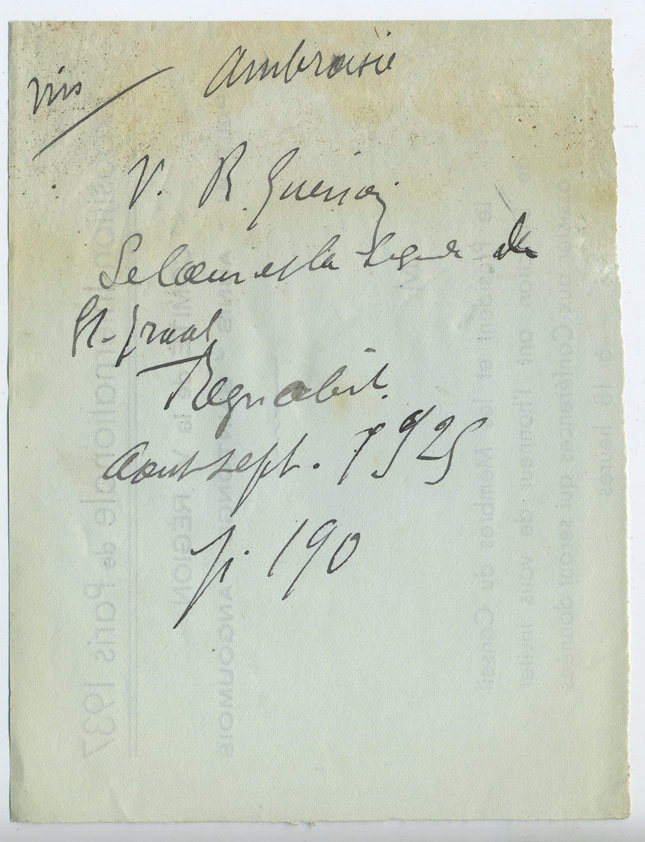 vin / Ambroisie
V. R. Guénon
Le Cœur et la Légende du
St-Graal
Regnabit.
Aout-sept. 1925
p. 190